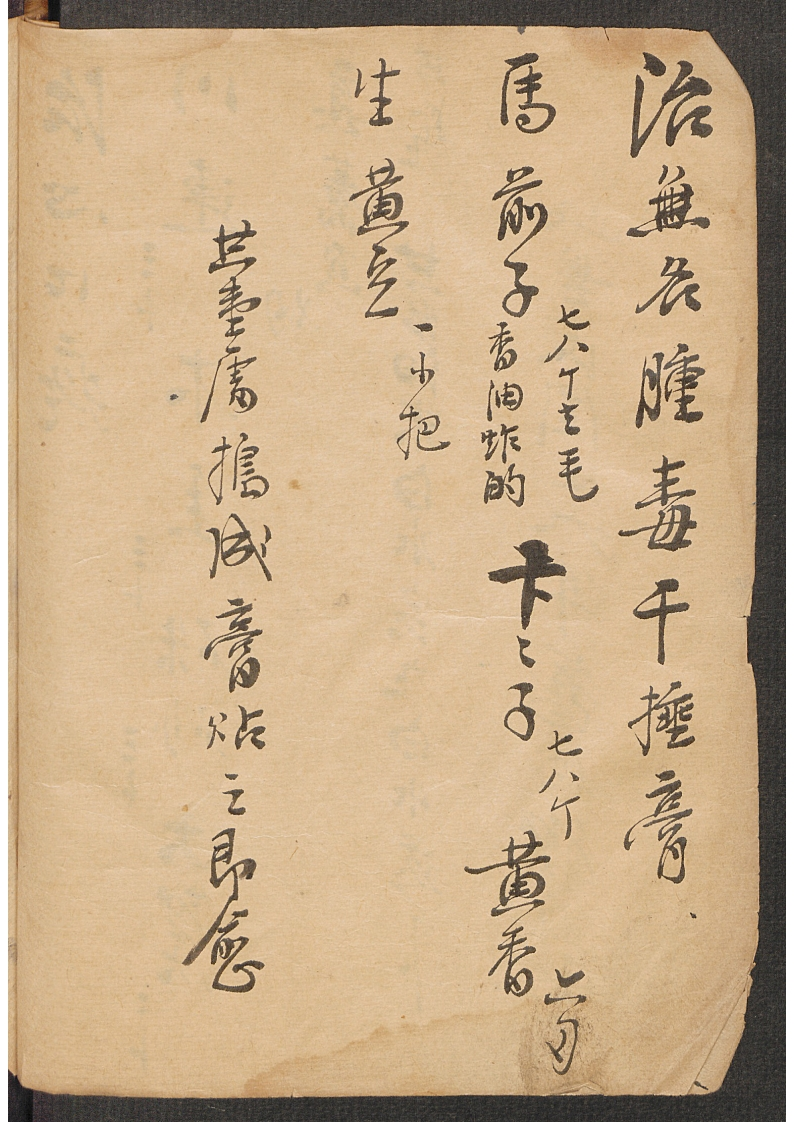 治無名腫毒千搥膏
馬前子 七八个去毛 香油炸的 卞〻子 七八个 黄香
生黄豆 一小把
共
搗成膏贴之即愈